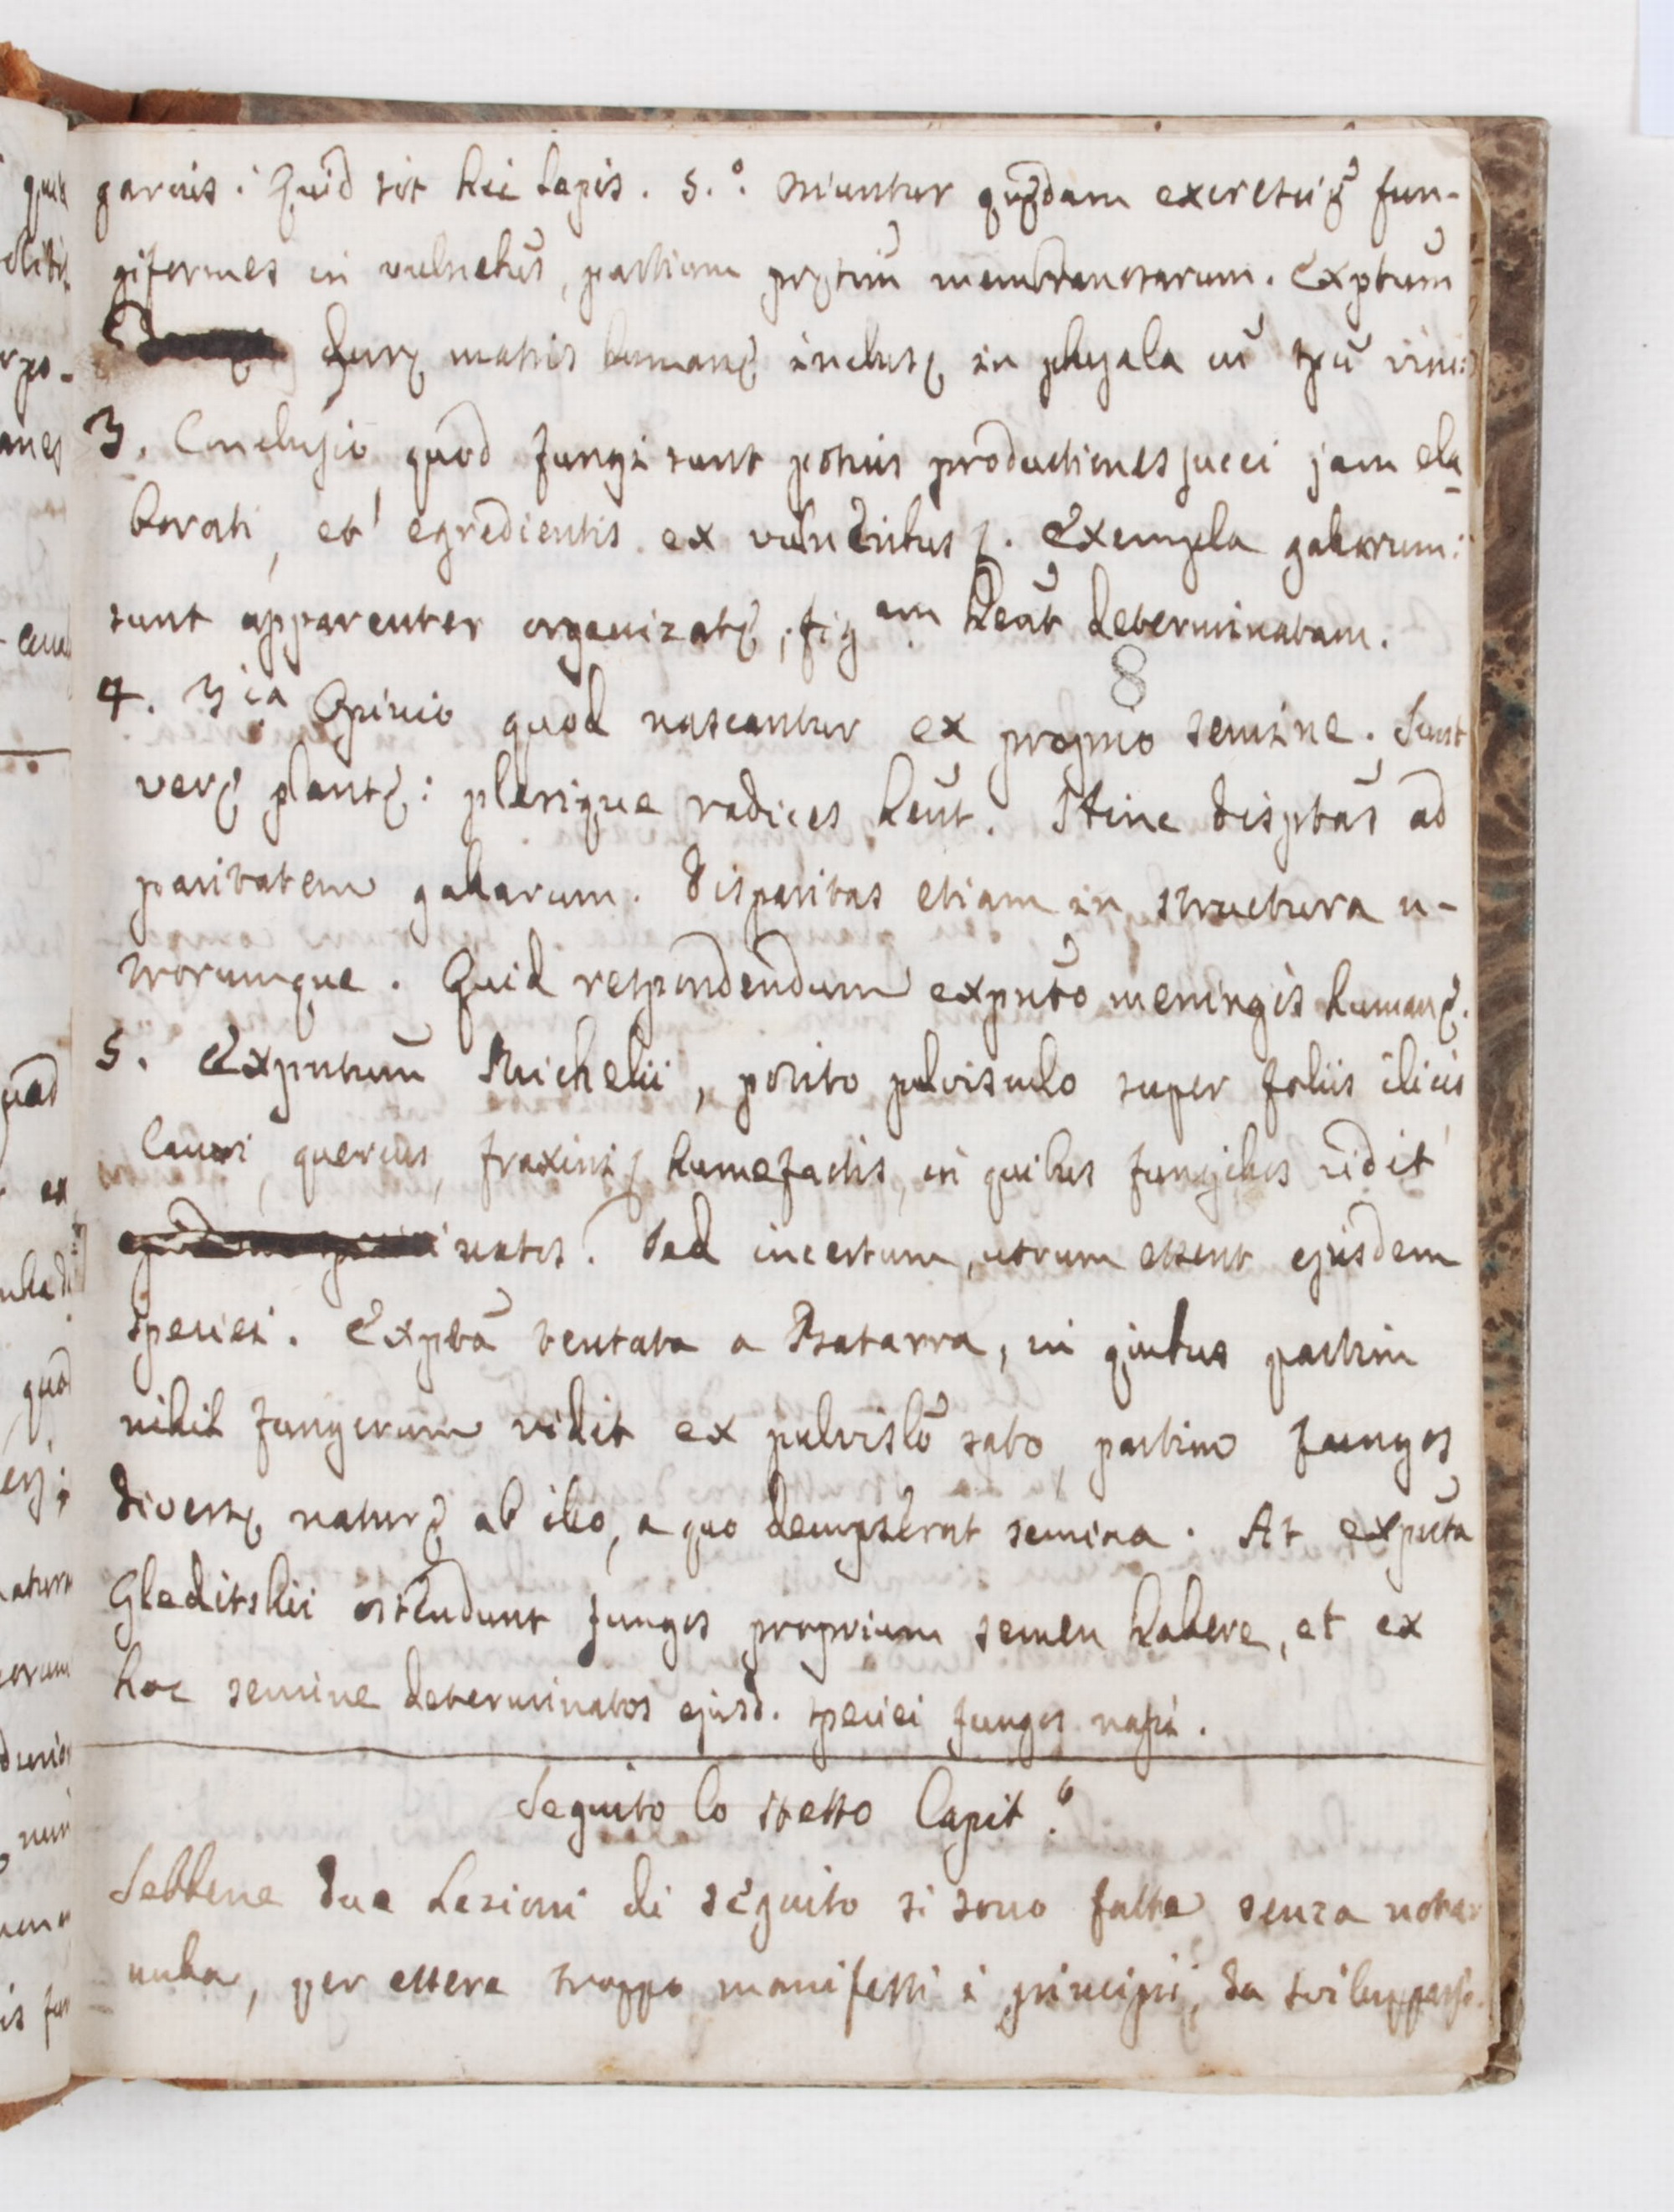 garicis: Quid sit hic Lapis. 5.° Oriuntur quędam excretiōę fun-
giformes in vulneb̄us, partium pręt̄im membranosarum. Exptūm
durę matris humanę inclusę in phyala cū spū vini:
3. Conclusio quod fungi sunt potius productiones succi jam ela
borati, et egredientis ex vulneribus ę. Exempla gallarum:
sunt apparenter organizatę, fig.am hēnt determinatam.
8
4. 3ia Opinio quod nascantur ex proprio semine. Sunt
verę plantę: plerique radices hēnt. Hinc disptās ad
paritatem gallarum. Disparitas etiam in structura u-
trorumque. Quid respondendum expūto meningis humanę.
5. Expūtum Michelii, posito pulvisculo super foliis ilicis
lauri, quercus, fraxini ę humefactis, in quibus fungillos vidit
natos. Sed incertum, utrum essent ejusdem
speciei. Expt̄a tentata a Battarra, in qūibus partim
nihil fungorum vidit ex pulvislō sato, partim fungos
diversę naturę ab illo, a quo dempserat semina. At expūta
Gleditshii ostendunt fungos proprium semen habere, et ex
hoc semine determinatos ejusd. speciei fungos nasci.
Seguito lo stesso Capit.°
Sebbene due Lezioni di seguito si sono fatte senza notar
nulla, per essere troppo manifesti i principii, da svilupparsi.